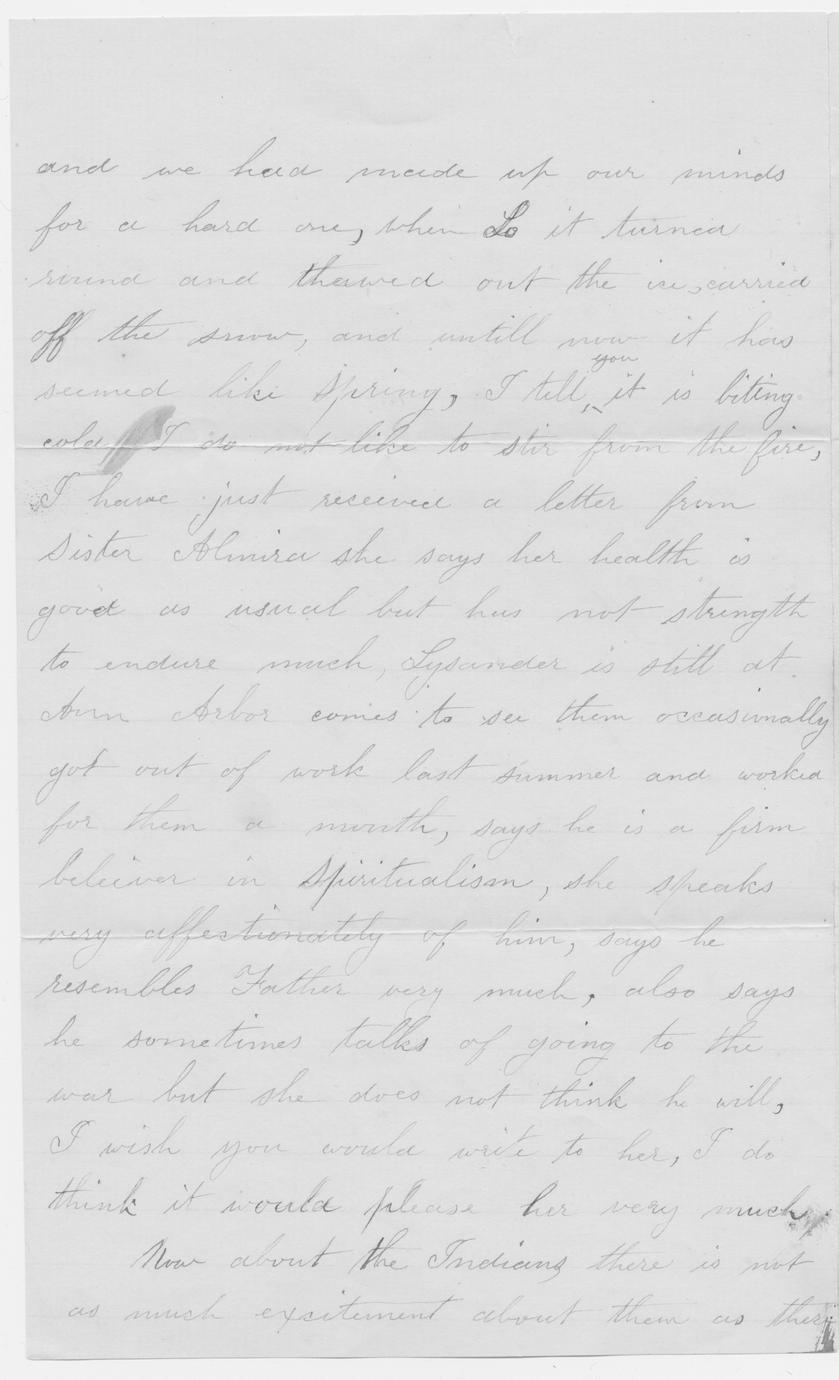 and we had made up our minds
for a hard one, when Lo it turned
round and thawed out the ice, carried
off the snow, and untill now it has
seemed like Spring, I tell you it is biting
cold I do not like to stir from the fire,
I have just received a letter from
Sister Almira she says her health is
good as usual but has not strength
to endure much, Lysander is still at
Ann Arbor comes to see them occasionally
got out of work last summer and worked
for them a month, says he is a firm
beleiver in Spiritualism, she speaks
very affectionately of him, says he
resembles Father very much, also says
he sometimes talks of going to the
war but she does not think he will,
I wish you would write to her, I do
think it would please her very much,
Now about the Indians there is not
as much excitement about them as there